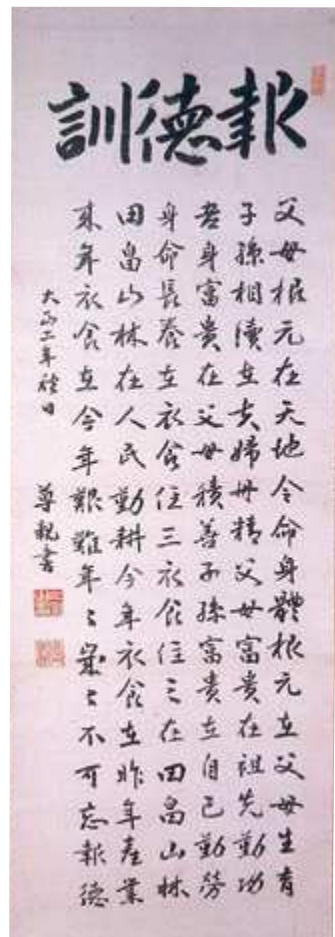 報徳訓
父母根元在天地令命身體根元在父母生育
子孫相續在夫婦丹精父母富貴在祖先勤功
吾身富貴在父母積善子孫富貴在自己勤労
身命長養在衣食住三衣食住三在田畠山林
田畠山林在人民勤耕今年衣食在昨年産業
来年衣食在今年艱難年々歳々不可忘報徳
大正二年 日
尊親書